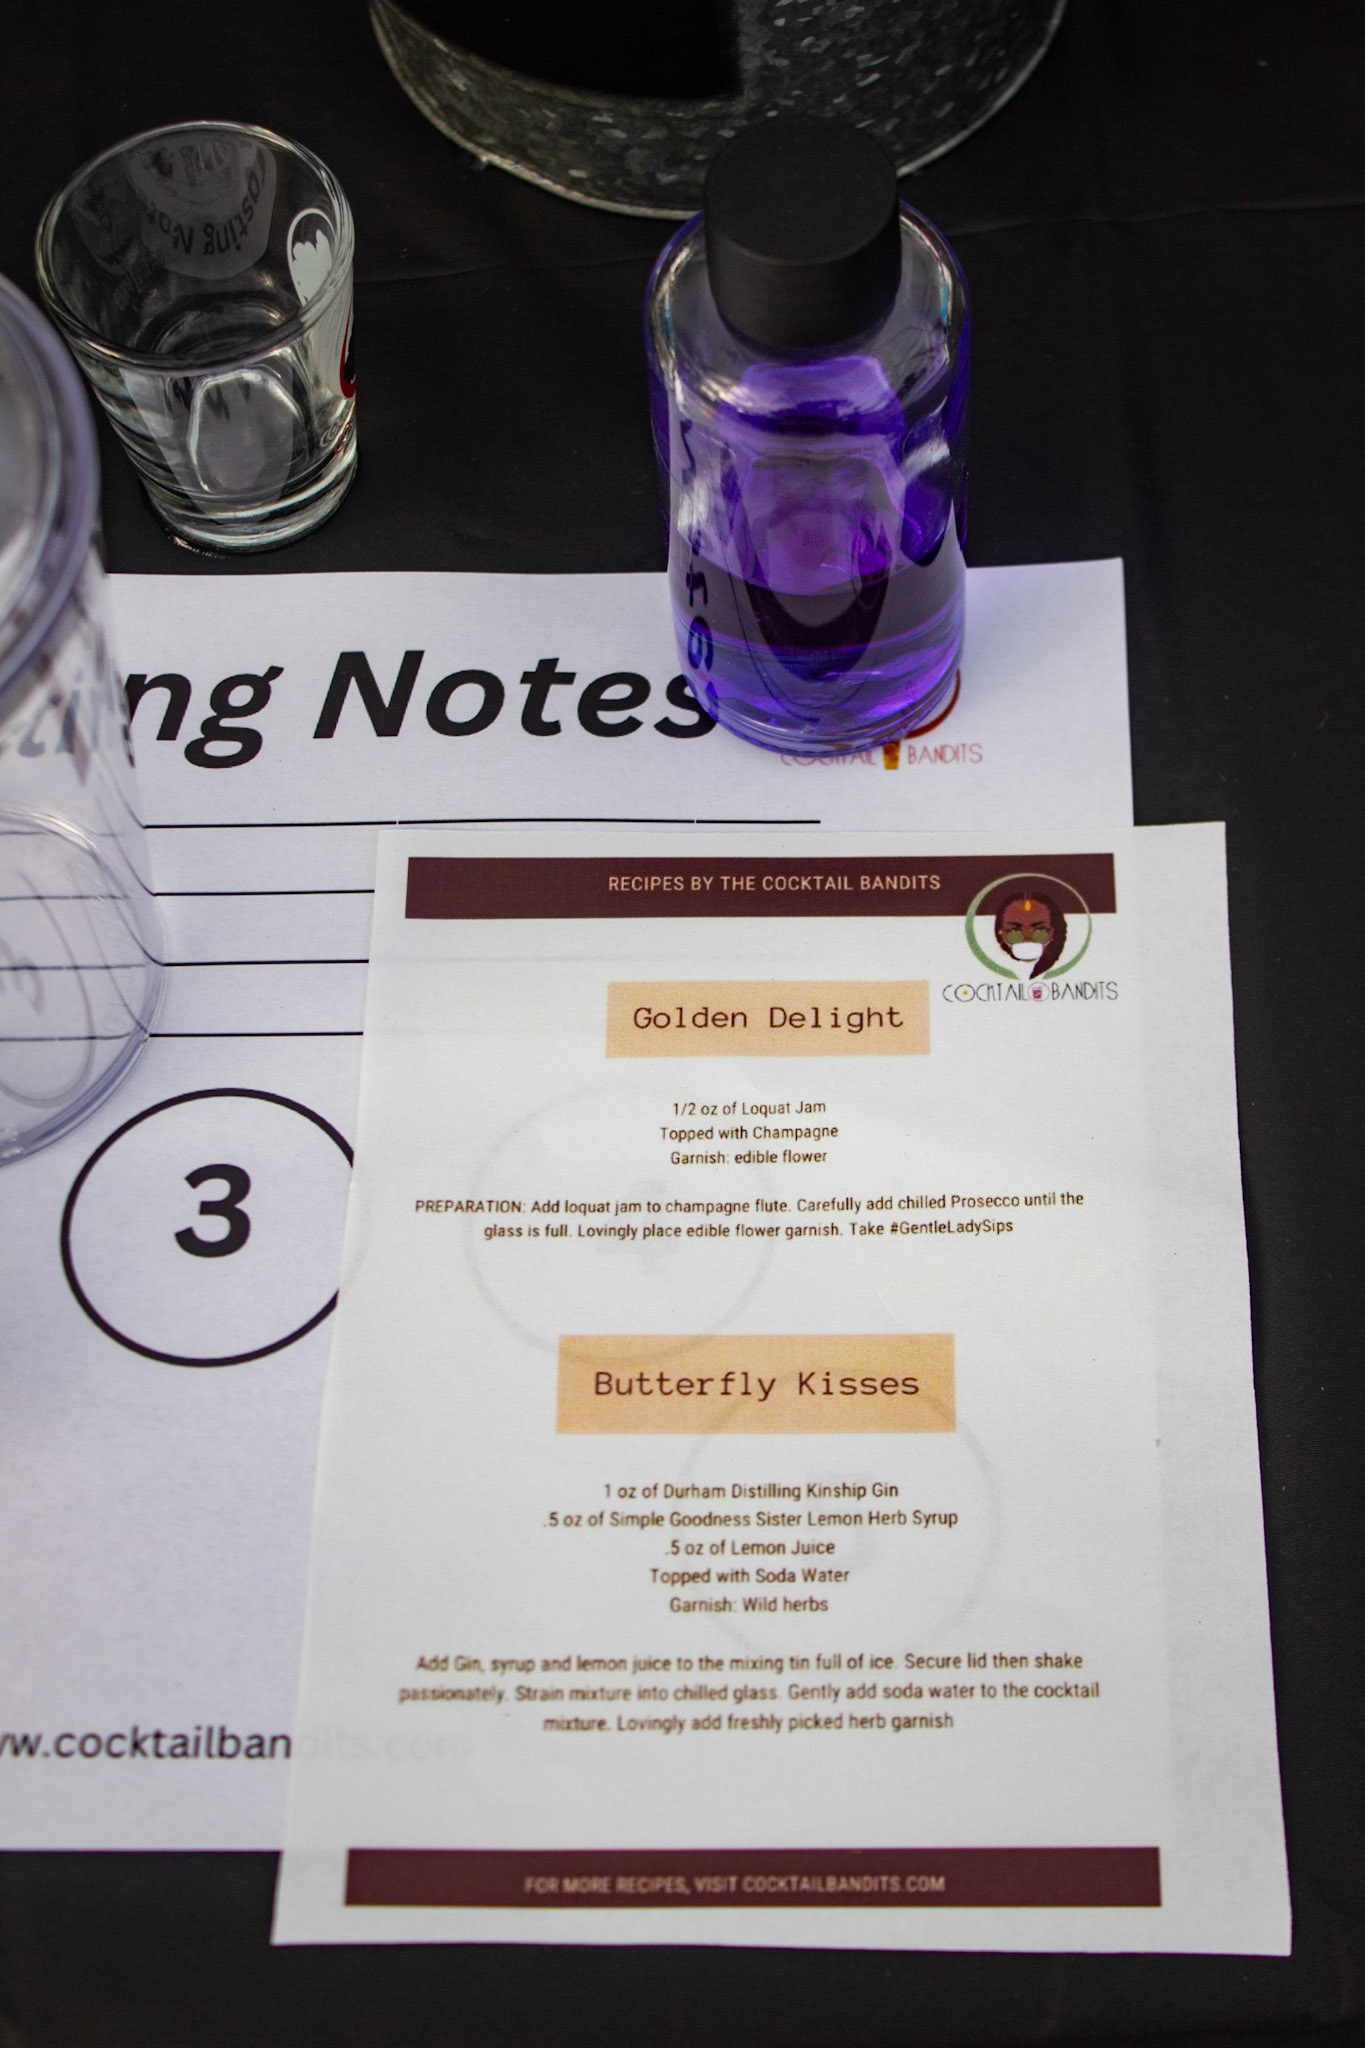 ng Notes
COCKTAIL BANDITS
RECIPES BY THE COCKTAIL BANDITS
COCKTAIL BANDITS
Golden Delight
1/2 oz of Loquat Jam
Topped with Champagne
Garnish: edible flower
PREPARATION: Add loquat jam to champagne flute. Carefully add chilled Prosecco until the
glass is full. Lovingly place edible flower garnish. Take #GentleLadySips
3
Butterfly Kisses
1 oz of Durham Distilling Kinship Gin
.5 oz of Simple Goodness Sister Lemon Herb Syrup
.5 oz of Lemon Juice
Topped with Soda Water
Garnish: Wild herbs
Add Gin, syrup and lemon juice to the mixing tin full of ice. Secure lid then shake
passionately. Strain mixture into chilled glass. Gently add soda water to the cocktail
mixture. Lovingly add freshly picked herb garnish
w.cocktailbandits.com
FOR MORE RECIPES, VISIT COCKTAILBANDITS.COM